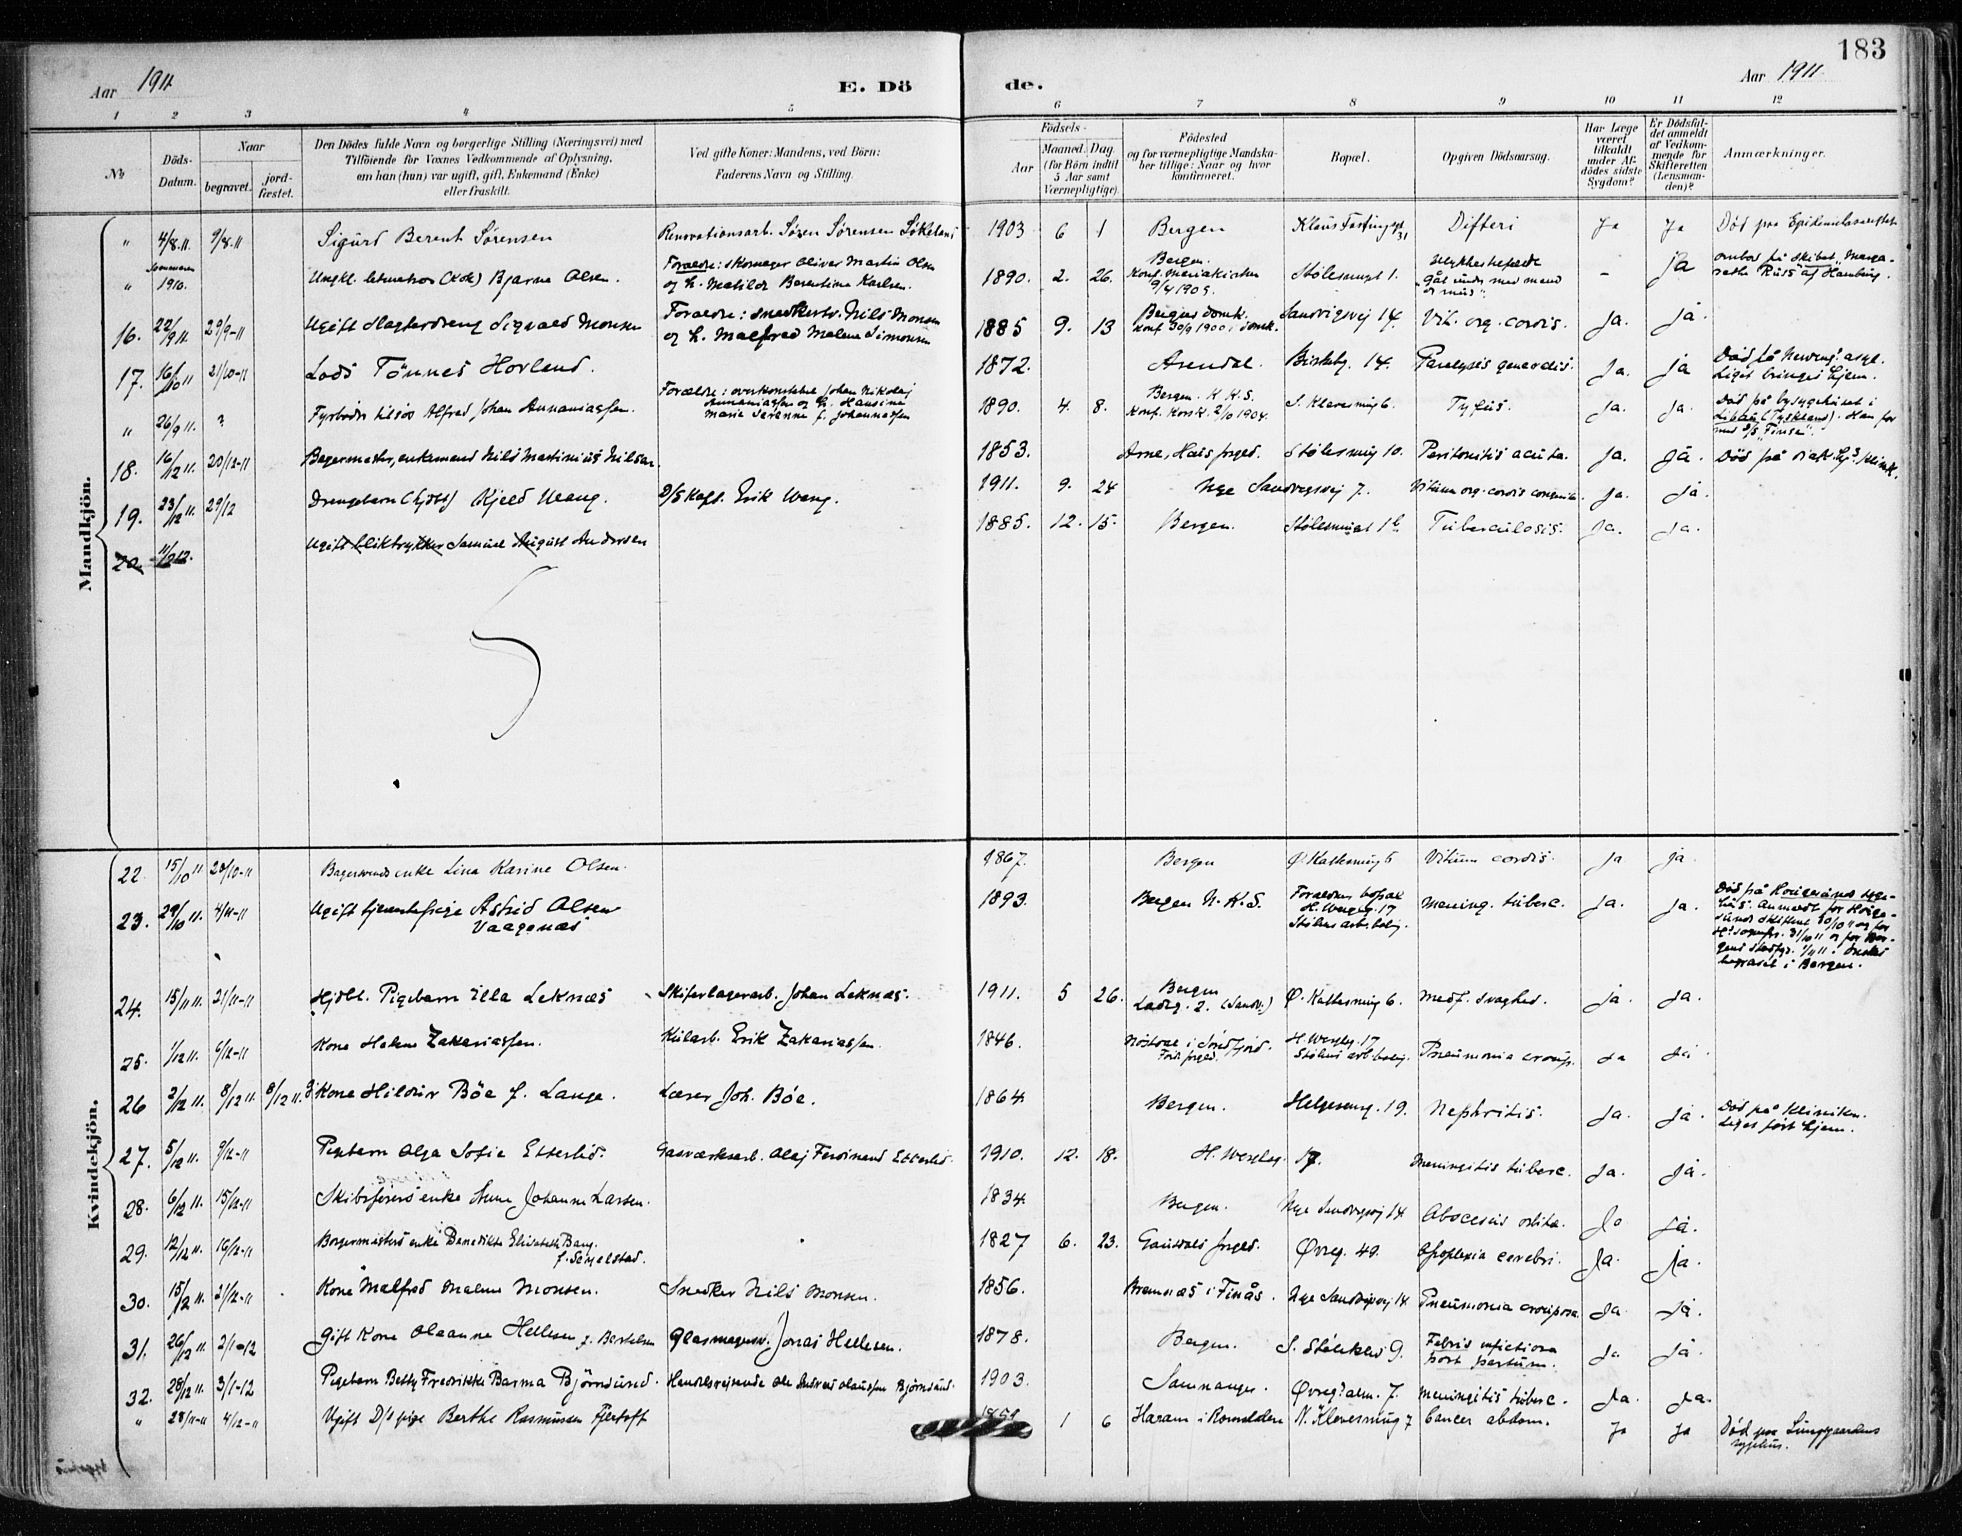 183
Aar 1911
E. Dö
de.
Aar 1911.
1 2 3 4 5 6 7 8 9 10 11 12
No
Döds-Datum.
Naar
begravet.
jord-fæstet.
Den Dödes fulde Navn og borgerlige Stilling (Næringsvei) med
Tilföiende for Voxnes Vedkommende af Oplysning,
om han (hun) var ugift, gift, Enkemand (Enke)
eller fraskilt.
Ved gifte Koner: Mandens, ved Börn:
Faderens Navn og Stilling.
Födsels-
Aar
Maaned. Dag.
(for Börn indtil
5 Aar samt
Værnepligtige).
Födested
og for værnepligtige Mandska-
ber tillige: Naar og hvor
konfirmeret.
Bopæl.
Opgiven Dödsaarsag.
Har Læge
været
tilkaldt
under Af-
dödes sidste
Sygdom?
Er Dödsfal-
det anmeldt
af Vedkom-
mende for
Skifteretten
(Lensman-
den)?
Anmærkninger.
Mandkjön.
" 4/8.11. 9/8.11 Sigurd Berent Sørensen Renovationsarb. Søren Sørensen 1903 6 1 Bergen Klaus Fastings 31 Difteri Ja Ja Død paa
" Sommeren 1910. Ungkl. (Kok) Bjarne Olsen. Forældre: skomager Oliver Martin Olsen
og h. Matilde Berentine Karlsen. 1890. 2. 26. Bergen.
Konf. Mariakirken
9/4 1905. Stølesmugt 1. "gåt under med mand
og mus". - Ja ombord på skibet "Marga-
rethe Russ" af Hamburg.
16. 22/9 11. 29/9-11 Ugift Sigvald Monsen Forældre: snedkersv. Nils Monsen
og h. Malfred Malene Simonsen 1885 9. 13 Bergens domk.
Konf. 30/9 1900 i domk. Sandvigsvej 14. Vit. org. cordis. Ja. Ja.
17. 16/10 11 21/10-11 Lods Tönnes Hovland. 1872. Arendal. 14. Paralysis generalis. Ja. Ja Død på asyl.
Liget bringes hjem.
" 26/9 11. ? Fyrbøder tilsjøs Alfred Johan Annaniassen. Forældre: overkonstabel Johan Nikolaj
Annaniassen og h. Hansine
Marie Severine f. Johannessen 1890. 4. 8. Bergen. N. K. S.
Konf. Korsk. 2/10 1904. S. Klevesmug 6. Tyfus. Ja. Ja. Død på bysygehuset i
Libau (Tyskland). Han for
med D/S "Finse".
18. 16/12 11 20/12-11 Bagermester, enkemand Nils Martinius Nilsen. 1853. Arne, Haus prgd. Stølesmug 10. Peritonitis acuta. Ja. Ja. Død på diak.
19. 23/12 11. 29/12 Drengebarn (hjdbt) Kjeld Wang. D/S Kapt. Erik Wang. 1911. 9. 24 Nye Sandvigsvej 7. Vitium org. cordis Ja. Ja.
20. 11/2 12. Ugift bliktrykker Samuel August Andersen 1885. 12. 15. Bergen. Stølesmuget 1b Tuberculosis. Ja. Ja.
Kvindekjön.
22. 15/10 11 20/10-11 Bagersvends enke Lina Karine Olsen. 1867. Bergen Ø. Kattesmug 5 Vitium cordis. Ja Ja.
23. 29/10 11. 4/11-11 Ugift Astrid Olsen
Vaagenæs 1893. Bergen N. K. S. Forældres bopæl
H. Wergeg. 17
Stølens arb. bolig. Mening. tuberc. Ja. Ja. Død på Haugesunds syge-
hus. Anmeldt for Hauge-
sunds skifteret 30/10 11 og for
31/10 11 og for Ber-
gens 1/11 11. Ønskes
begravet i Bergen.
24. 15/11 11. 21/11-11 Hjdbt. Pigebarn Ella Leknæs Skiferlagerarb. Johan Leknæs. 1911. 5 26. Bergen
Ladeg. 2. (Sandv.) Ø. Kattesmug 6. Medf. svaghed. Ja. Ja.
25. 1/12 11. 6/12-11 Kone Helene Zakariassen. Kularb. Erik Zakariassen. 1846. i Søndfjord.
prgd. H. Wergeg. 17
Stølens arb. bolig. Pneumonia croup. Ja Ja
26 2/12 11. 8/12 11. 8/12 11. Kone Hildur Böe f. Lange. Lærer Joh. Böe. 1864. Bergen. Helgesens g. 19. Nephritis. Ja. Ja. Død på Kliniken.
Liget ført hjem.
27. 5/12 11. 9/12-11 Pigebarn Olga Sofie Etterlid. Gasværksarb. Olaf Ferdinand Etterlid. 1910. 12. 18. H. Wergeg. 17. Meningitis tuberc. Ja. Ja.
28. 6/12 11. 15/12-11 Skibsførers enke Anne Johanne Larsen. 1834. Bergen. Nye Sandvigsvej 14 Abscesus orbitæ. Ja Ja.
29. 12/12 11. 16/12-11 Borgermesters enke Benedikte Elisabeth Bang.
f. Seyelstad. 1827 6. 23. Gausdals prgd. Øvreg. 49. Apoplexia cerebri. Ja. Ja.
30. 15/12 11. 21/12-11 Kone Malfred Malene Monsen. Snedker Nils Monsen. 1856. Bremnæs i Finås. Nye Sandvigsvej 14. Pneumonia crouposa Ja. Ja.
31. 26/12 11 2/1-12 Gift kone Olaanna Hellesen f. Bertelsen Glasmagersv. Jonas Hellesen. 1878. Bergen. S. Stølekleiv 9. Febris infectiosa
post partum. Ja Ja.
32. 28/12 11. 3/1-12 Pigebarn Betty Fredrikke Barma Björndund. Handelsrejsende Ole Andreas Olaussen Björndund. 1903. Samnanger. Øvreg. alm. 7. Meningitis tuberc. Ja. Ja.
" 28/11-11 4/12-11 Ugift D/s pige Berthe Rasmussen Fjertoft 1 6 Haram i Romsdalen N. Klevesmug 7 Cancer abdom. Ja Ja Død paa Lungegaardens
sygehus.